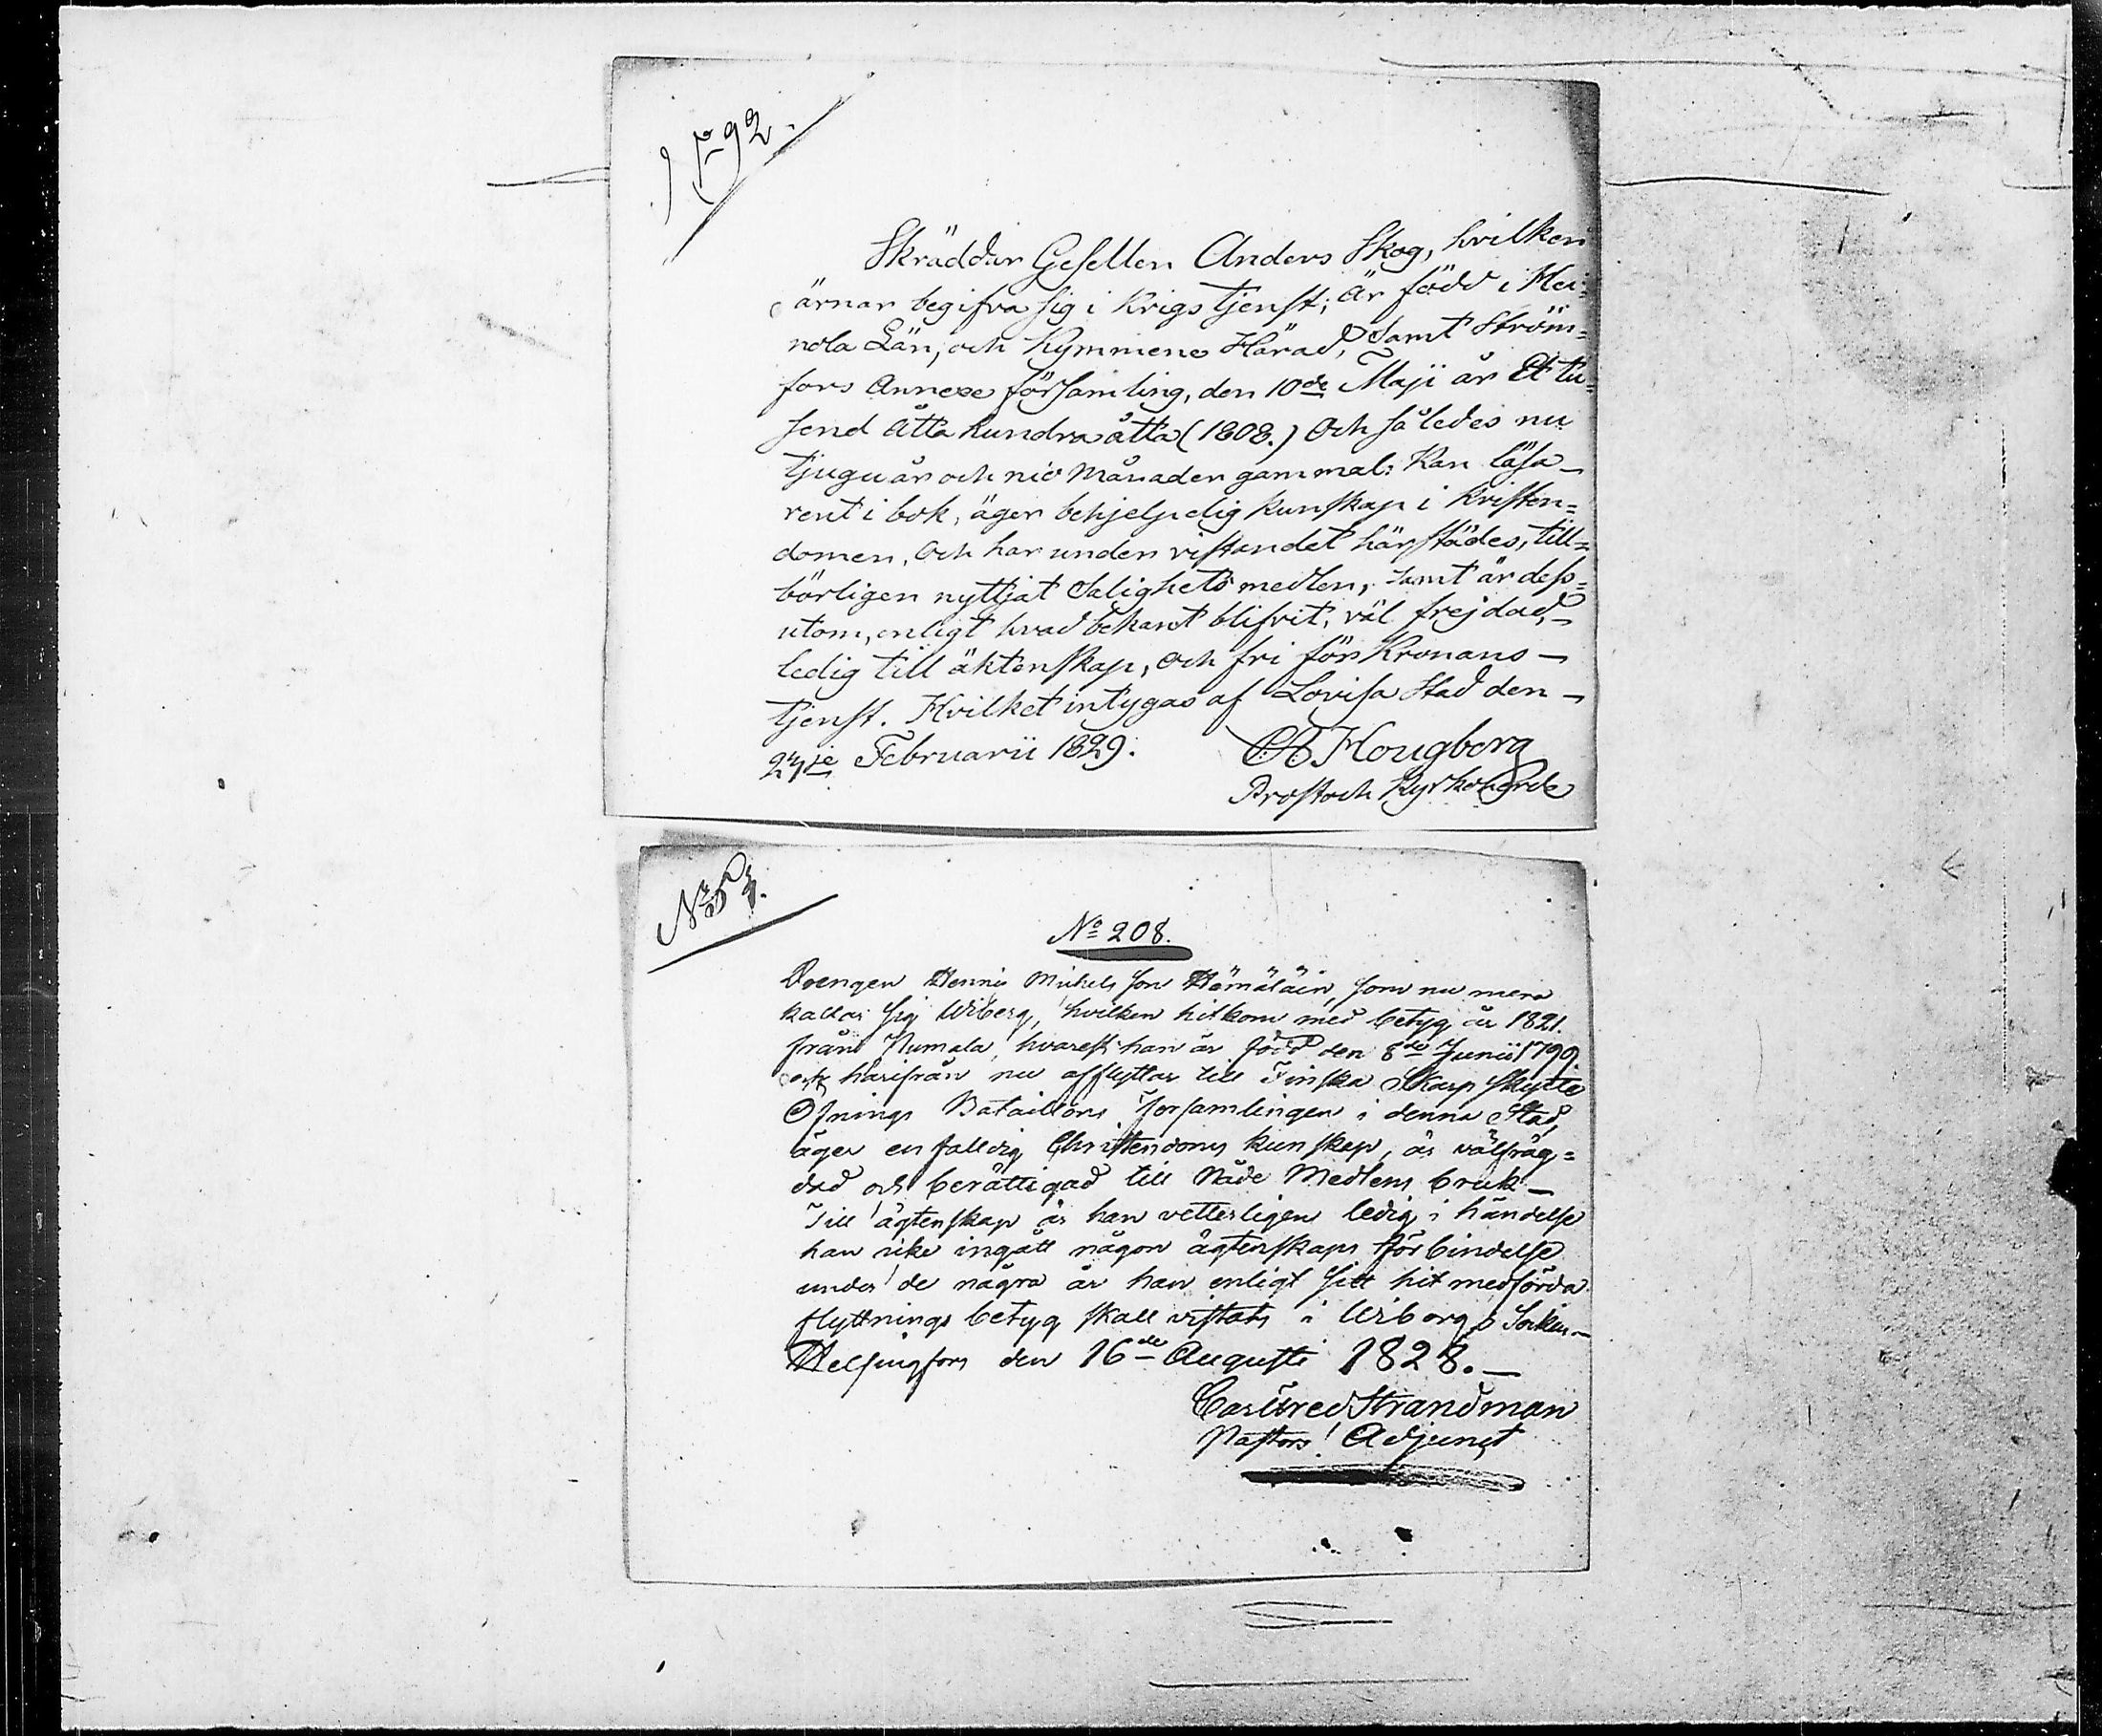 Skräddar Gesellen Anders Skog, hvilken
ärnar begifva sig i Krigs tjenst; är född i Hei=
nola Län, och Kymmene Härad, Samt Ström=
fors Annexe församling, den 10de Maji år Et tu=
send åtta hundra åtta (1808.) Och således nu
tjugu år och nio månader gammal: Kan läsa
rent i bok, äger behjelpelig kunskap i Kristen=
domen, Och har under vistandet härstädes, till=
börligen nyttjat Salighets medlen, samt är dess=
utom, enligt hvad bekant blifvit, väl frejdad,
ledig till äktenskap, och fri för Kronans
tjenst. Hvilket intygas af Lovisa Stad den
Februarii 1829. Hougberg
Prost och Kyrkoherde
No 208.
Drengen Michels son Hämäläin, som nu mera
kallar sig Wiberg, hvilken hitkom med betyg år 1821.
från Pumala, hvarest han är född den 8de Junii 1799
och härifrån nu afflyttar till Finska Skarp skytte
Öfnings Bataillons församlingen i denna Stad,
äger enfalldig Christendoms kunskap, är välfräg=
dad och berättigad till Nåde Medlens bruk
Till ägtenskap är han vetterligen ledig i händelse
han icke ingått någon ägtenskaps förbindelse
under de några år han enligt sitt hit medförda
flyttnings betyg skall vistats i Wiborgs Socken
Helsingfors den 16de Augusti 1828.
Strandman
Pastors Adjunct